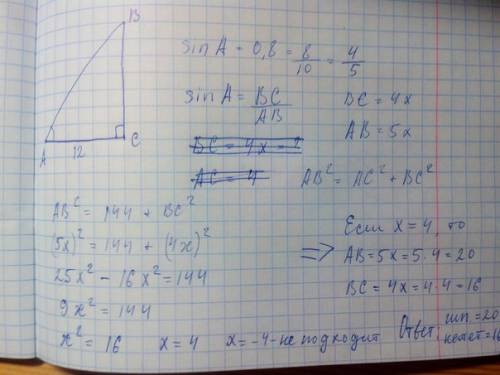 B
A
12
C
sin A = 0,8 = 8/10 = 4/5
sin A = BC/AB
BC = 4x
AB = 5x
BC = 4x = 2
AC = 4
AB² = AC² + BC²
AB² = 144 + BC²
(5x)² = 144 + (4x)²
25x² - 16x² = 144
9x² = 144
x² = 16 x = 4 x = -4 - не подходит
⇒ Если x = 4, то
AB = 5x = 5·4 = 20
BC = 4x = 4·4 = 16
Ответ: гип = 20
катет = 16